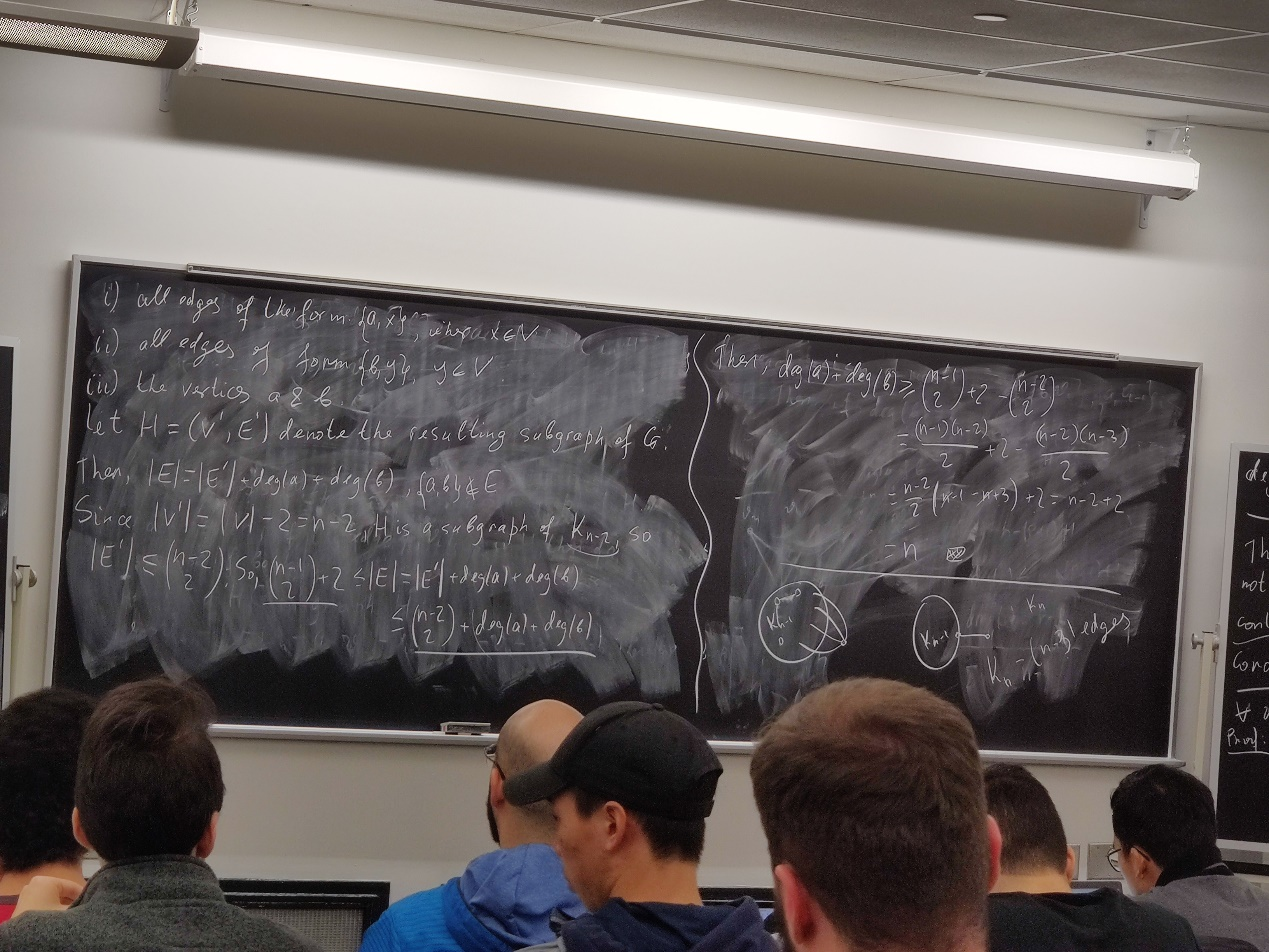 i) all edges of the form {a, x}, where x ∈ V
ii) all edges of form {b, y}, y ∈ V
iii) the vertices a & b.
Let H = (V', E') denote the resulting subgraph of G.
Then, |E| = |E'| + deg(a) + deg(b), {a, b} ∉ E
Since |V'| = |V| - 2 = n - 2, H is a subgraph of K_{n-2}, so
|E'| ≤ (n-2 2). So, (n-1 2) + 2 ≤ |E| = |E'| + deg(a) + deg(b)
≤ (n-2 2) + deg(a) + deg(b)
Then, deg(a) + deg(b) ≥ (n-1 2) + 2 - (n-2 2)
= (n-1)(n-2)/2 + 2 - (n-2)(n-3)/2
= n-2/2 (n-1-n+3) + 2 = n-2+2
= n
K_{n-1}
K_{n-1}
K_n
K_n - edges
de
Th
not
cont
Cor
∀
Proof: